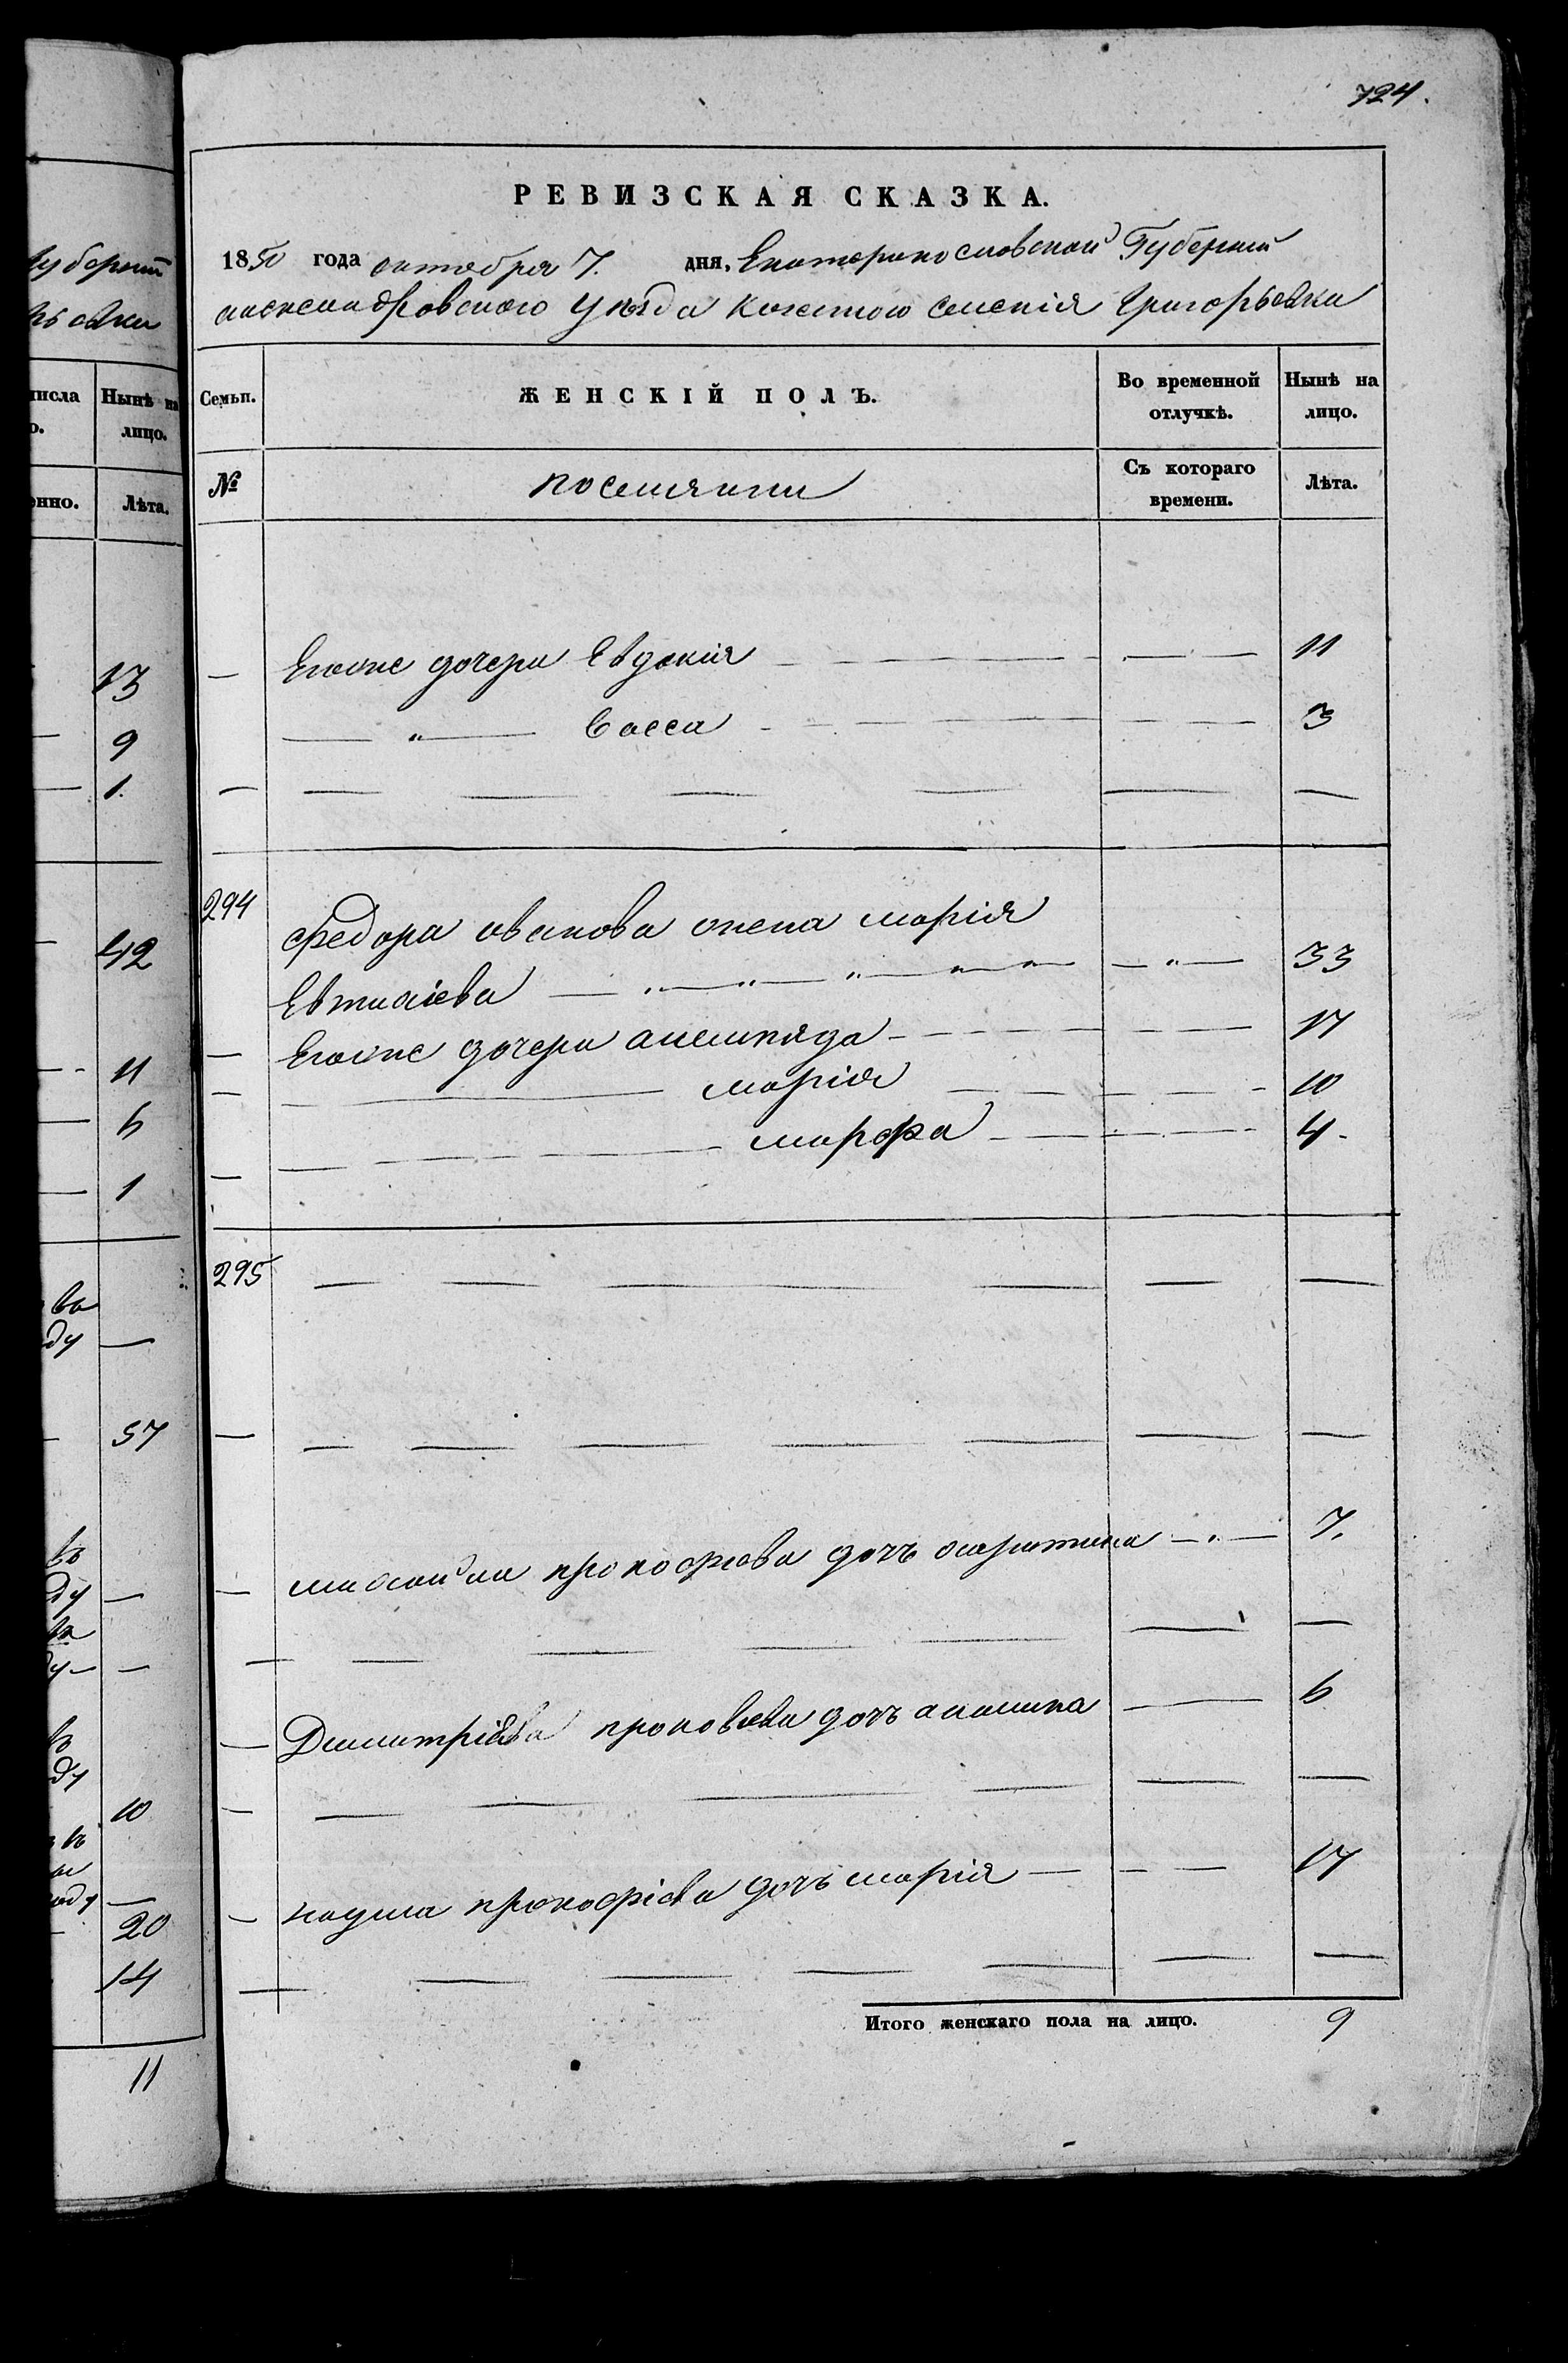 724.
РЕВИЗСКАЯ СКАЗКА.
1850 года октября 7. дня, Екатеринославской Губерніи
александровского уѣзда Козенного селенія Григорьевки
Семьи. ЖЕНСКІЙ ПОЛЪ. Во временной отлучкѣ. Нынѣ на лицо.
№ поселяни Съ котораго времени. Лѣта.
— Еговые дочери Евдокія — 11
— " — Васса — 3
294
Федора иванова жена марія
Евтихіева — " — " — " — 33
— Еговые дочери алемпіяда — 17
— марія — 10
— марфа — 4.
295
— прокофіева дочь — " — 7.
— Димитріева прокофіева дочь — 6
— наума прокофіева дочь марія — 17
Итого женскаго пола на лицо. 9
губерніи
рьевки
числа Нынѣ на
о. лицо.
енно. Лѣта.
13
9
1.
42
11
6
1
ва
ду —
57
ду —
10
оду —
20
14
11